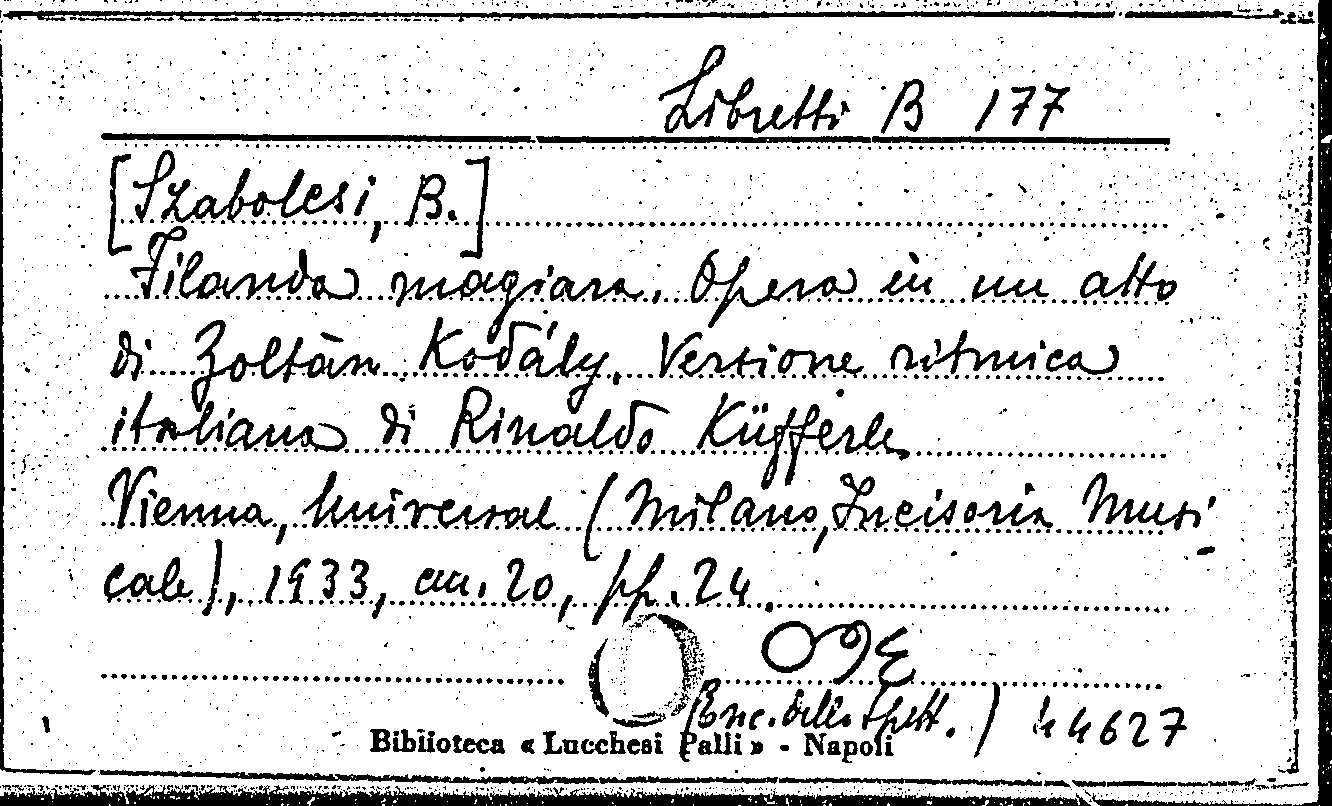 Libretti B 177
[Szabolcsi, B.]
Filanda magiara. Opera in un atto
di Zoltàn Kodály. Versione ritmica
italiana di Rinaldo Küfferle
Vienna, Universal (Milano, Incisoria Musi-
cale), 1933, cm. 20, pp. 24.
(Enc. dello Spett.) 44627
Biblioteca « Lucchesi Palli » - Napoli